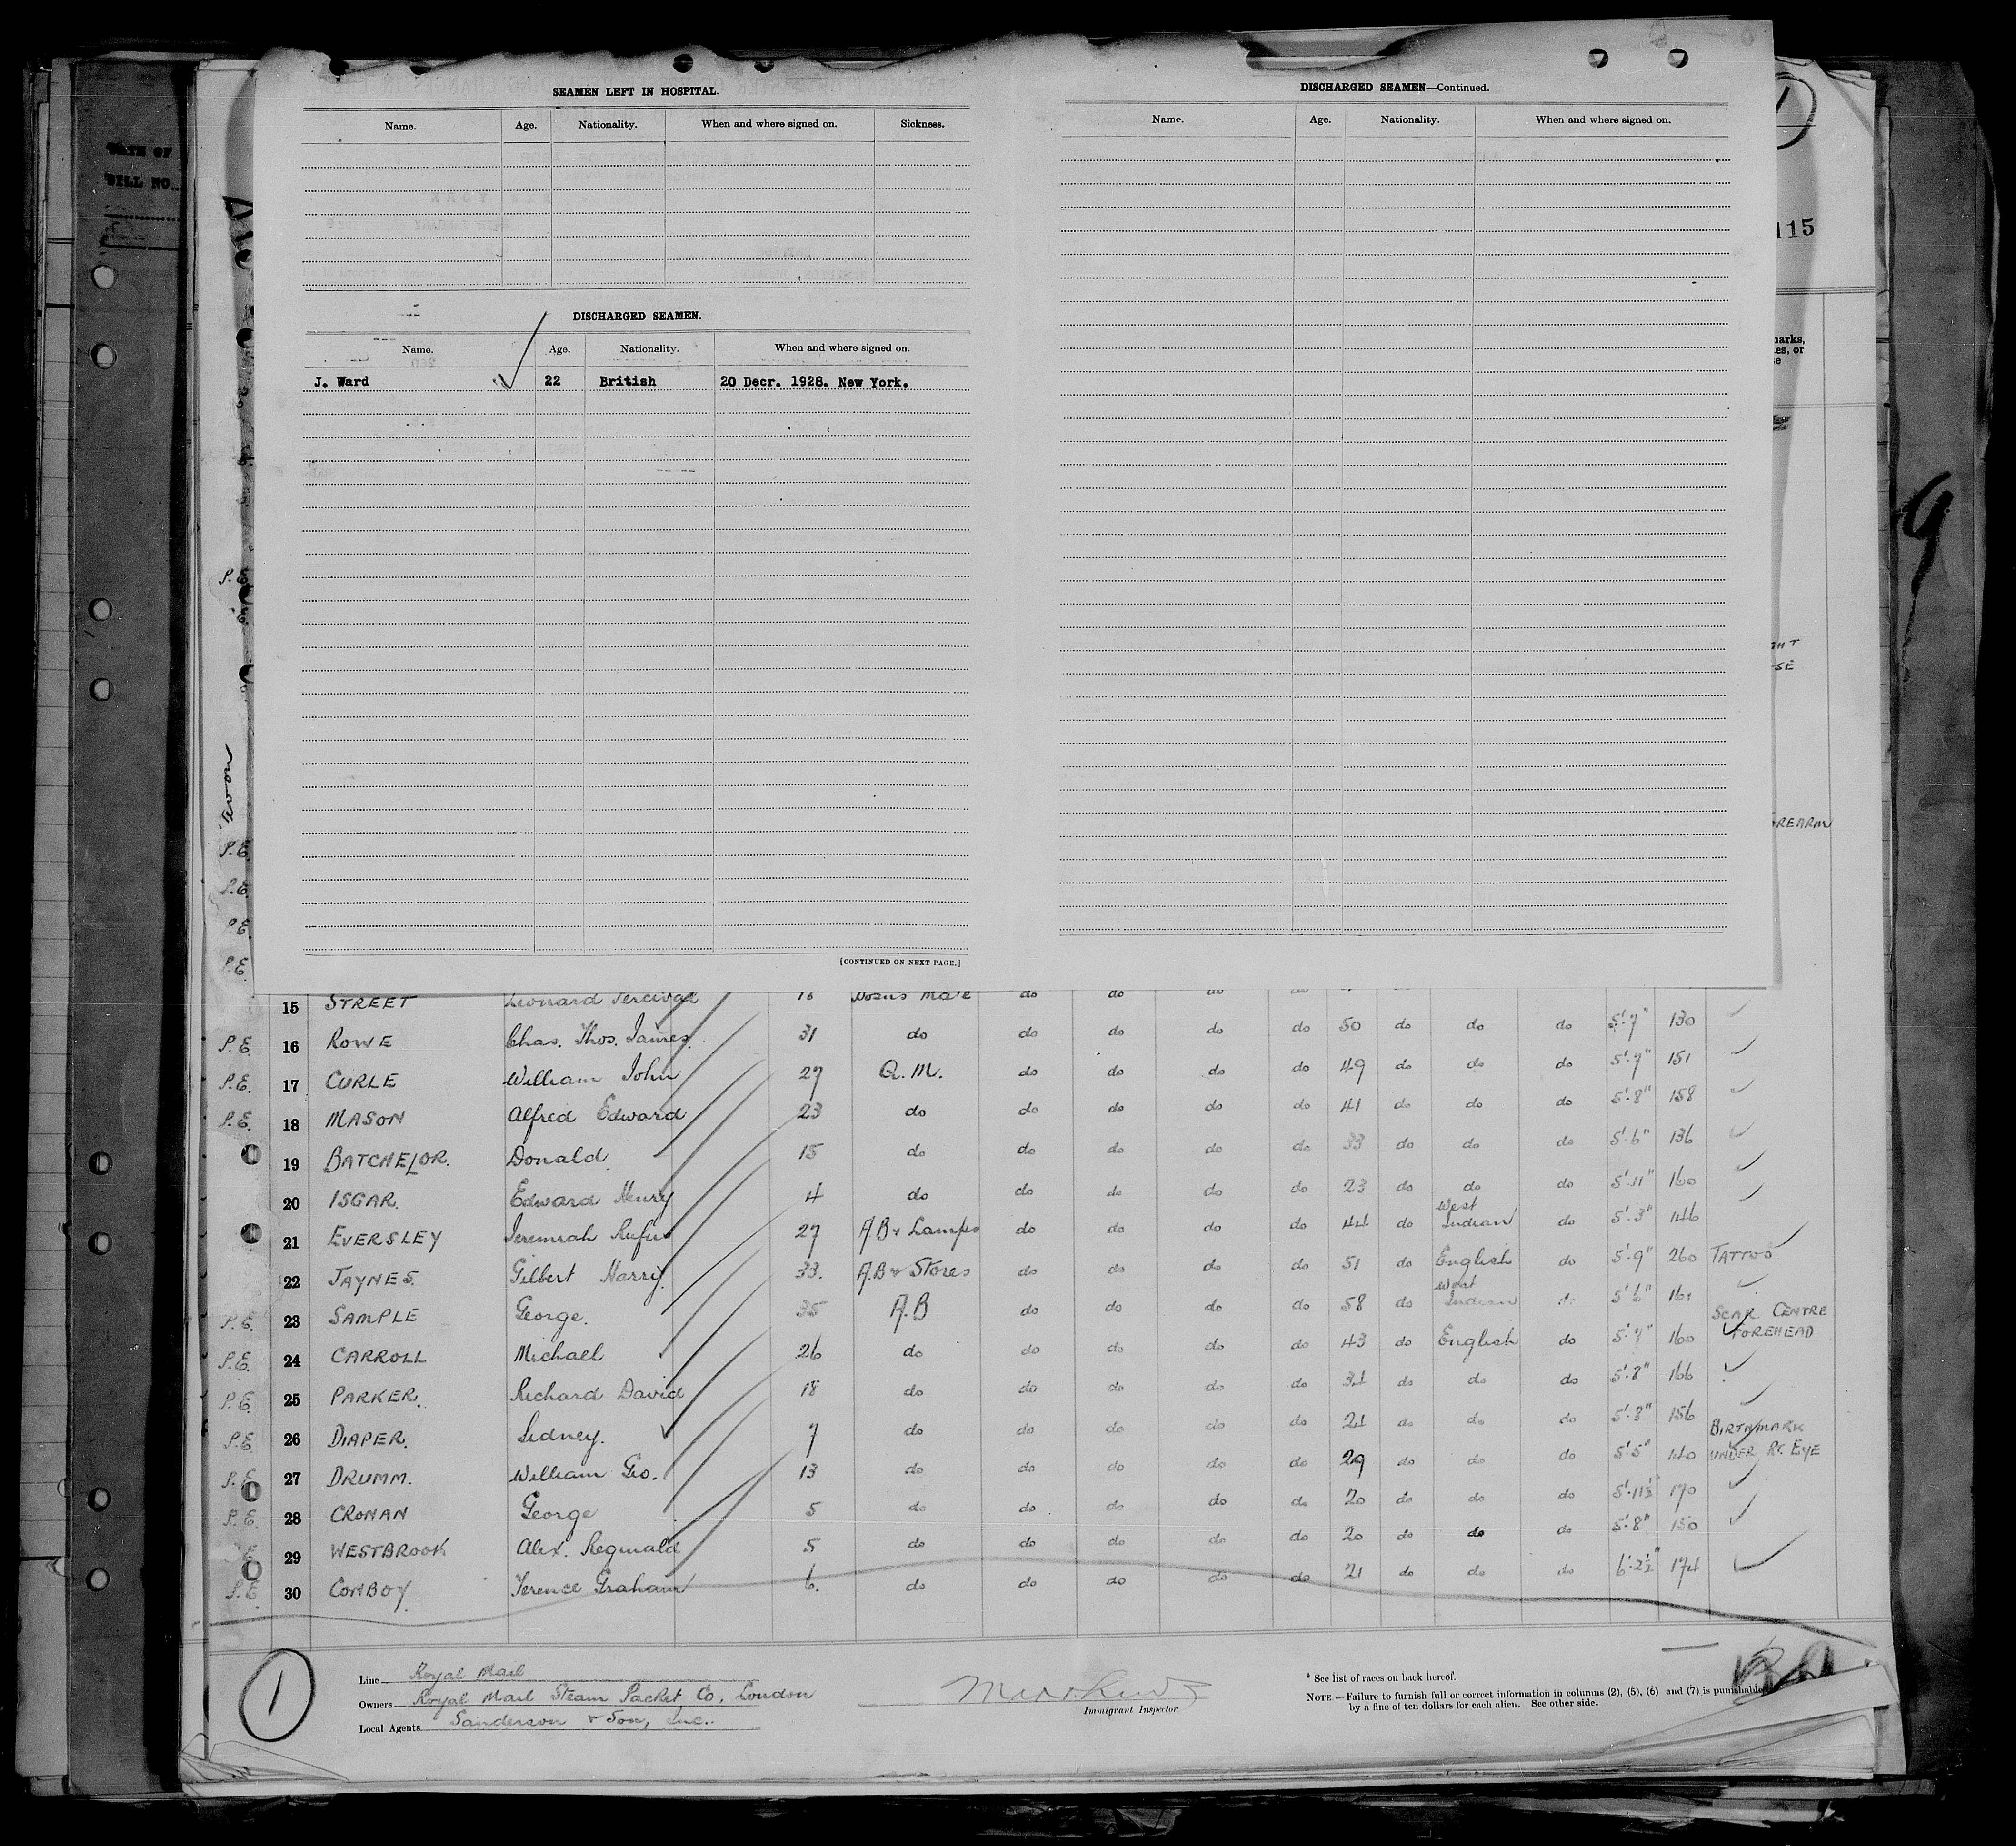 SEAMEN LEFT IN HOSPITAL.
Name. Age. Nationality. When and where signed on. Sickness.
DISCHARGED SEAMEN.
Name. Age. Nationality. When and where signed on.
J. Ward 22 British 20 Decr. 1928. New York.
[CONTINUED ON NEXT PAGE.]
DISCHARGED SEAMEN—Continued.
Name. Age. Nationality. When and where signed on.
1
115
9
Avon
P.E.
P.E.
P.E.
P.E.
P.E.
15 STREET Leonard Percival
P.E. 16 ROWE Chas. Thos. James. 31 do do do do do 50 do do do 5'.7" 130
P.E. 17 CURLE William John 27 Q.M. do do do do 49 do do do 5'.9" 151
P.E. 18 MASON Alfred Edward 23 do do do do do 41 do do do 5'.8" 158
19 BATCHELOR. Donald 15 do do do do do 33 do do do 5'.6" 136
20 ISGAR. Edward Henry 4 do do do do do 23 do do do 5'.11" 160
21 EVERSLEY Jeremiah Rufus 27 A.B & Lamps do do do do 44 do West Indian do 5'.3" 146
22 JAYNES. Gilbert Harry. 33. A.B & Stores do do do do 51 do English do 5'.9" 260 TATTOO
P.E. 23 SAMPLE George. 35 A.B do do do do 58 do West Indian do 5'.6" 161 SCAR CENTRE FOREHEAD
P.E. 24 CARROLL Michael 26 do do do do do 43 do English do 5'.7" 160
P.E. 25 PARKER. Richard David 18 do do do do do 34 do do do 5'.8" 166
P.E. 26 DIAPER. Sidney. 7 do do do do do 24 do do do 5'.8" 156 BIRTHMARK UNDER RT. EYE
P.E. 27 DRUMM. William Geo. 13 do do do do do 29 do do do 5'.5" 140
P.E. 28 CRONAN George 5 do do do do do 20 do do do 5'.11½" 170
29 WESTBROOK Alex. Reginald 5 do do do do do 20 do do do 5'.8" 150
P.E. 30 CONBOY Terence Graham 6. do do do do do 21 do do do 6'.2½" 174
1
Line Royal Mail
Owners Royal Mail Steam Packet Co. London
Local Agents Sanderson & Son, Inc..
Immigrant Inspector
* See list of races on back hereof.
NOTE.—Failure to furnish full or correct information in columns (2), (5), (6) and (7) is punishable
by a fine of ten dollars for each alien. See other side.